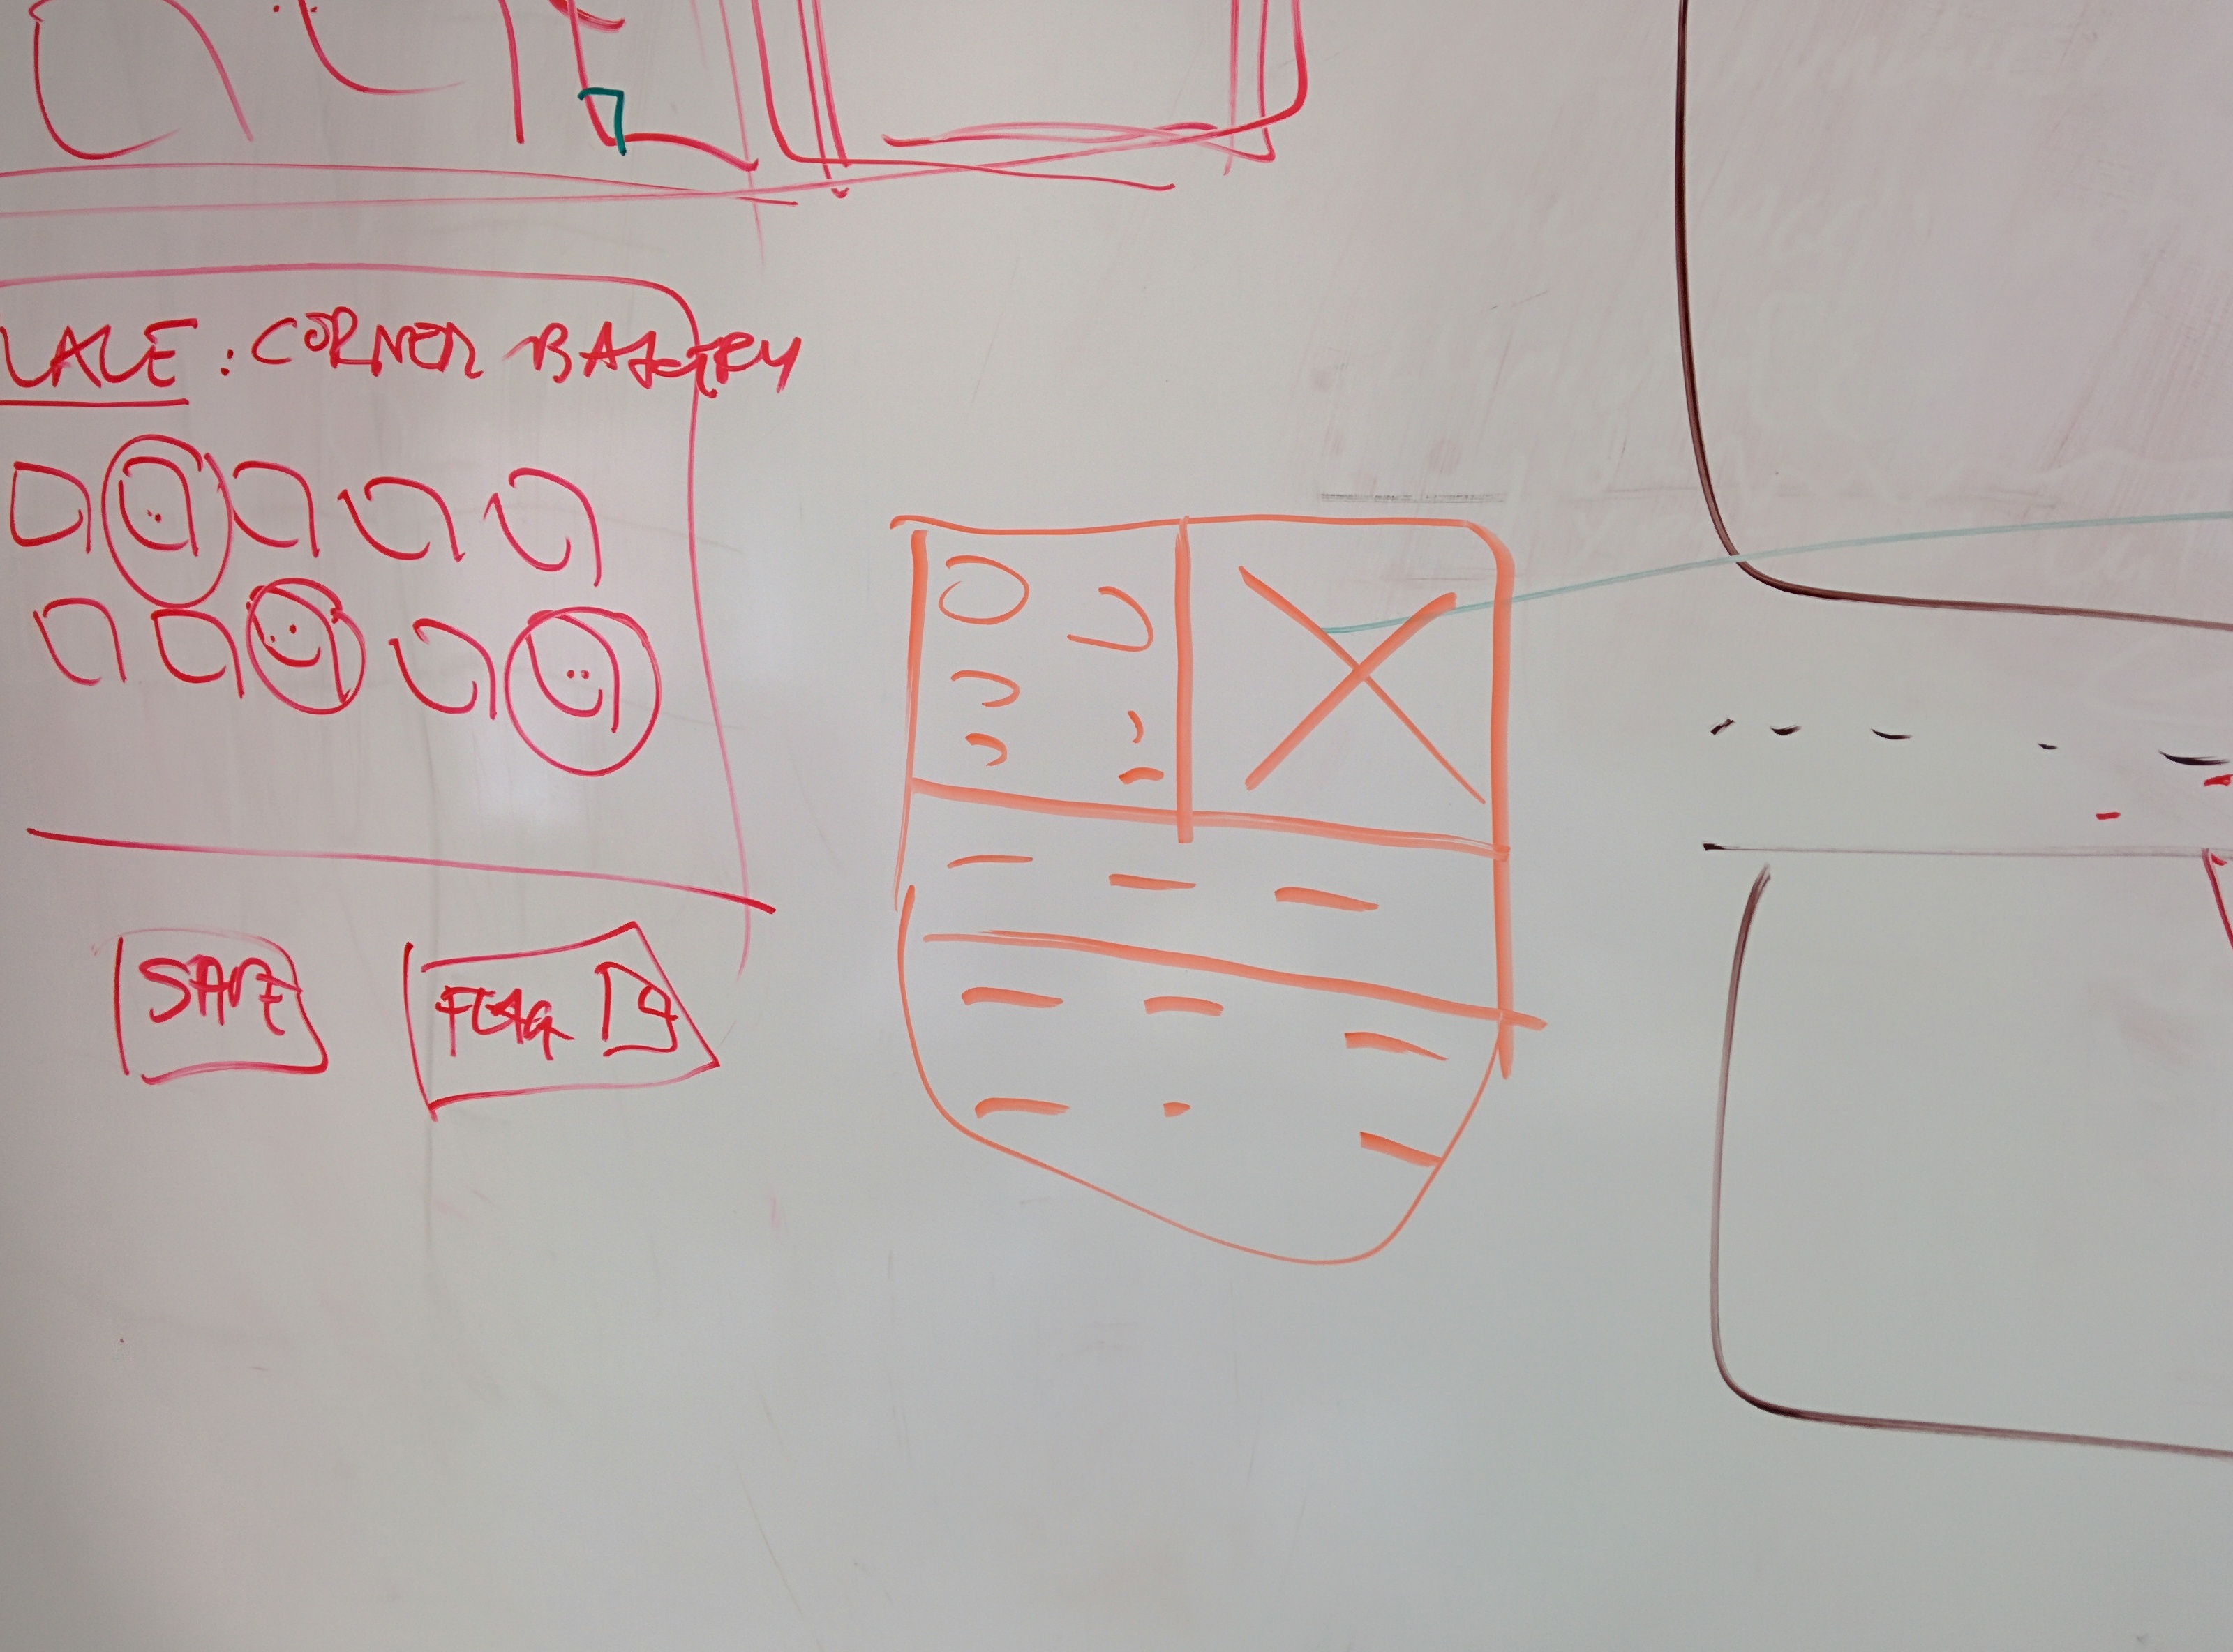 LACE: CORNER BAKERY
SAVE
FLAG